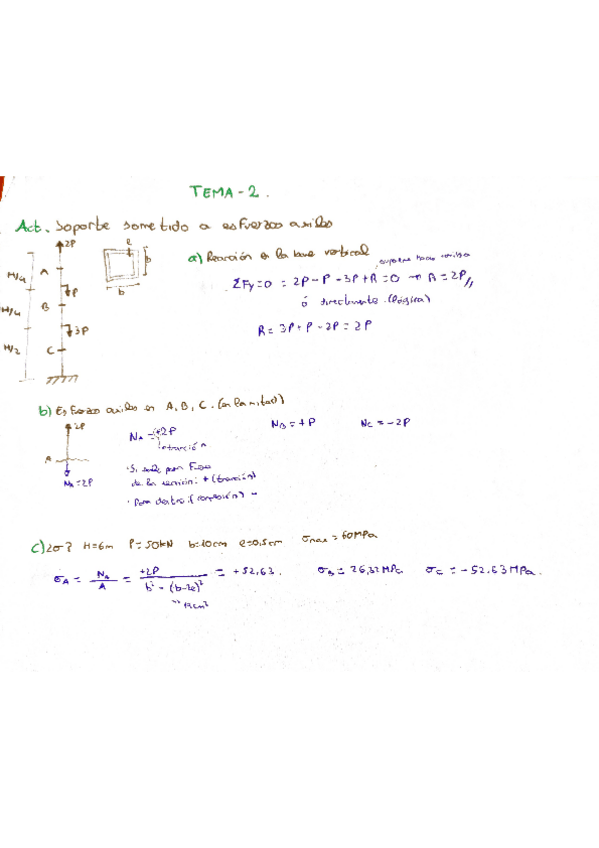 TEMA - 2.
Act. Soporte sometido a esfuerzos axiles
2P
e
b
b
H/4
A
P
H/4
B
3P
H/2
C
a) Reacción en la base vertical
ΣFy=0 = 2P - P - 3P + R = 0 → R = 2P//
ó directamente. (lógica)
R = 3P + P - 2P = 2P
b) Esfuerzo axiles en A, B, C. (en la mitad)
2P
A
NA = 2P
NA = +2P
tracción
NB = +P
NC = -2P
· Si sale por fuera
de la sección: + (tracción)
· Para dentro: (compresión) -
c) ¿σ? H=6m P=50kN b=10cm e=0,5cm σmax = 60MPa
σA = NA/A = +2P/(b² - (b-2e)²) = +52,63. σB = 26,32 MPa σC = -52.63 MPa.
19cm²